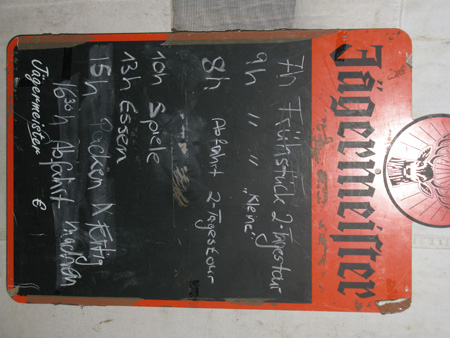 Jägermeister
7h Frühstück 2-Tagestour
9h " " "Kleine"
8h Abfahrt 2-Tagestour
10h Spiele
13h Essen
15h Packen & fertig
16³⁰h Abfahrt machen
Jägermeister €